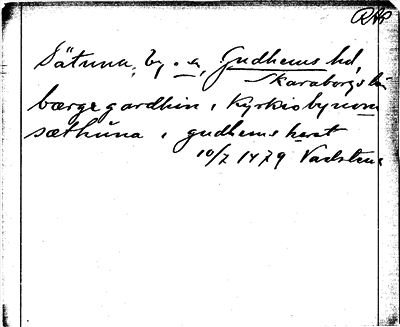 RAP
Sätuna, by o. a, Gudhems hd,
Skaraborgs län
bærge gardhin i Kyrkiobynom
sæthuna i gudhems herat
10/7 1479 Vadstena